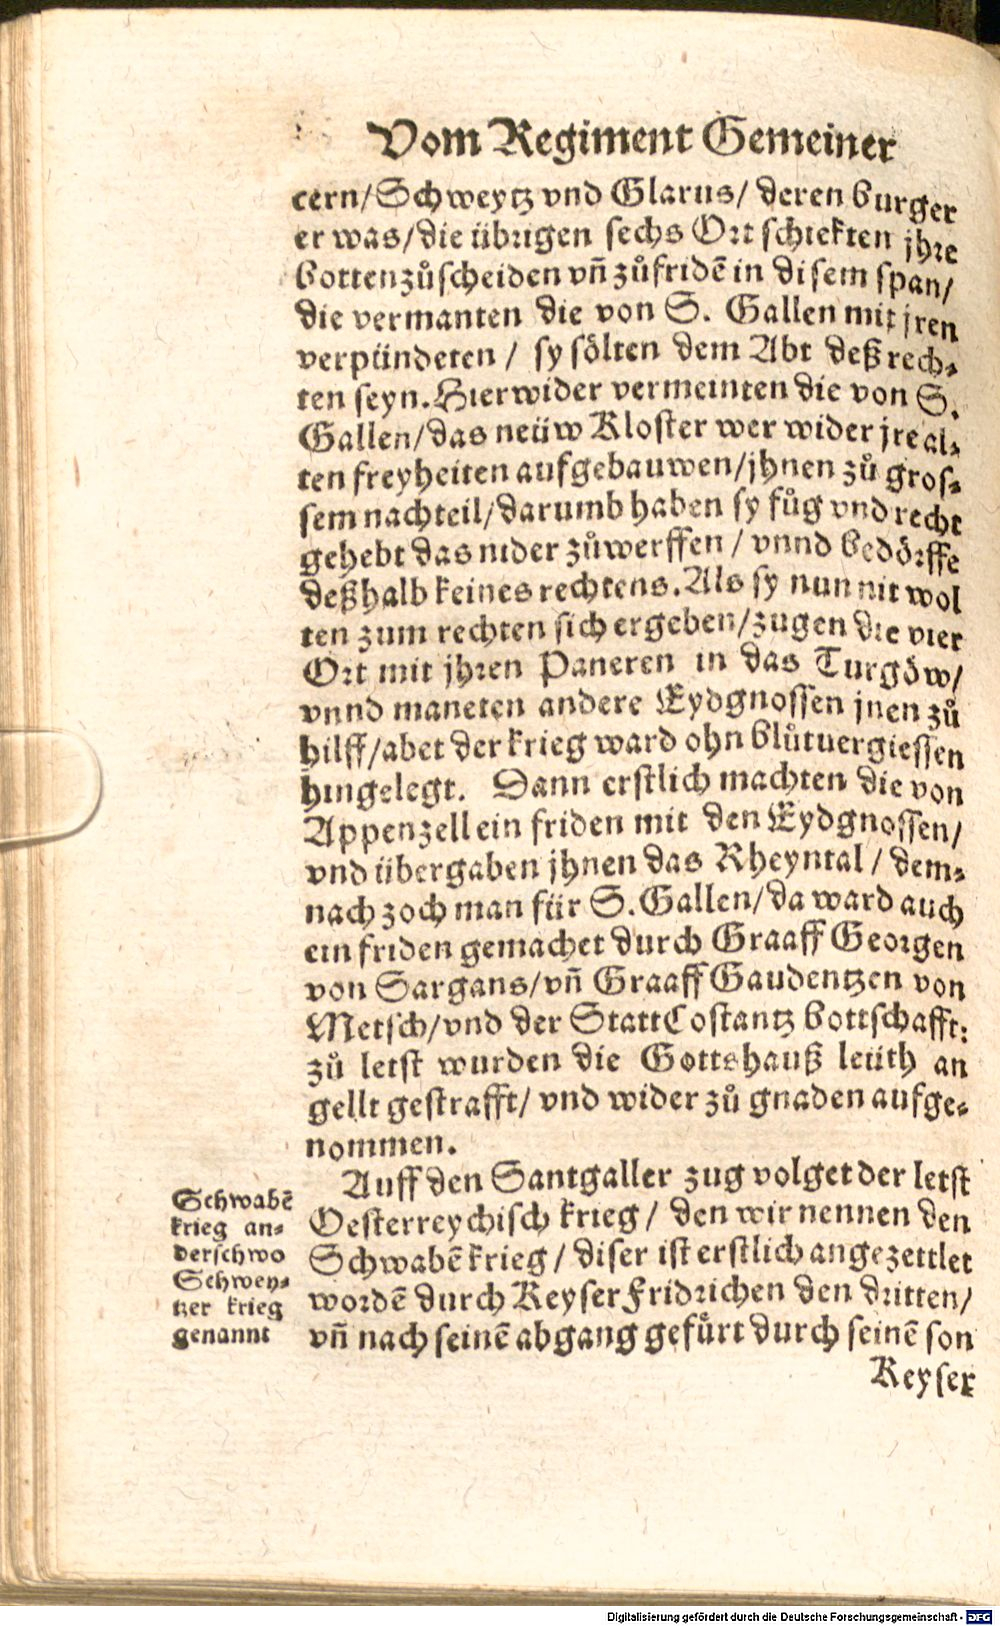 Vom Regiment Gemeiner
cern/Schweytz vnd Glarus/ deren burger
er was/die übrigen sechs Ort schickten jhre
botten zůscheiden vñ zůfridẽ in disem span/
die vermanten die von S. Gallen mit jren
verpündeten / sy sölten dem Abt deß rech-
ten seyn. Hierwider vermeinten die von S.
Gallen/das neüw Kloster wer wider jre al-
ten freyheiten aufgebauwen/jhnen zů gros-
sem nachteil/darumb haben sy fůg vnd recht
gehebt das nider zůwerffen / vnnd bedörffe
deßhalb keines rechtens. Als sy nun nit wol
ten zum rechten sich ergeben/zugen die vier
Ort mit jhren Paneren in das Turgöw/
vnnd maneten andere Eydgnossen jnen zů
hilff/abet der krieg ward ohn blůtuergiessen
hingelegt. Dann erstlich machten die von
Appenzell ein friden mit den Eydgnossen/
vnd übergaben jhnen das Rheyntal / dem-
nach zoch man für S. Gallen/da ward auch
ein friden gemachet durch Graaff Georgen
von Sargans/vñ Graaff Gaudentzen von
Metsch/vnd der Statt Costantz bottschafft:
zů letst wurden die Gottshauß leüth an
gellt gestrafft/ vnd wider zů gnaden aufge-
nommen.
Auff den Santgaller zug volget der letst
Oesterreychisch krieg / den wir nennen den
Schwabẽ krieg / diser ist erstlich angezettlet
wordẽ durch Keyser Fridrichen den dritten/
vñ nach seinẽ abgang gefürt durch seinẽ son
Keyser
Schwabẽ
krieg an-
derschwo
Schwey-
tzer krieg
genannt
Digitalisierung gefördert durch die Deutsche Forschungsgemeinschaft - DFG